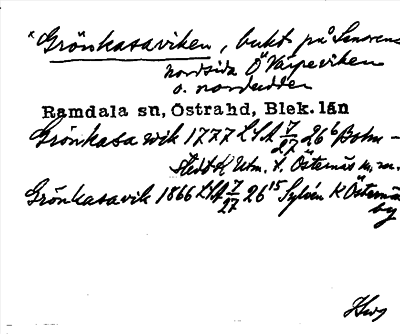 * Grönkasaviken, bukt på Senorens
nordsida Ö Värpeviken
o. nordudden
Ramdala sn, Östrahd, Blek. län
Grönkasa wik 1777 LSA 7/27 26⁶ Bohm-
stedt K Utm. t. Östernäs m.m.
Grönkasavik 1866 LSA 7/27 26¹⁵ Sylvén K Östernäs
by